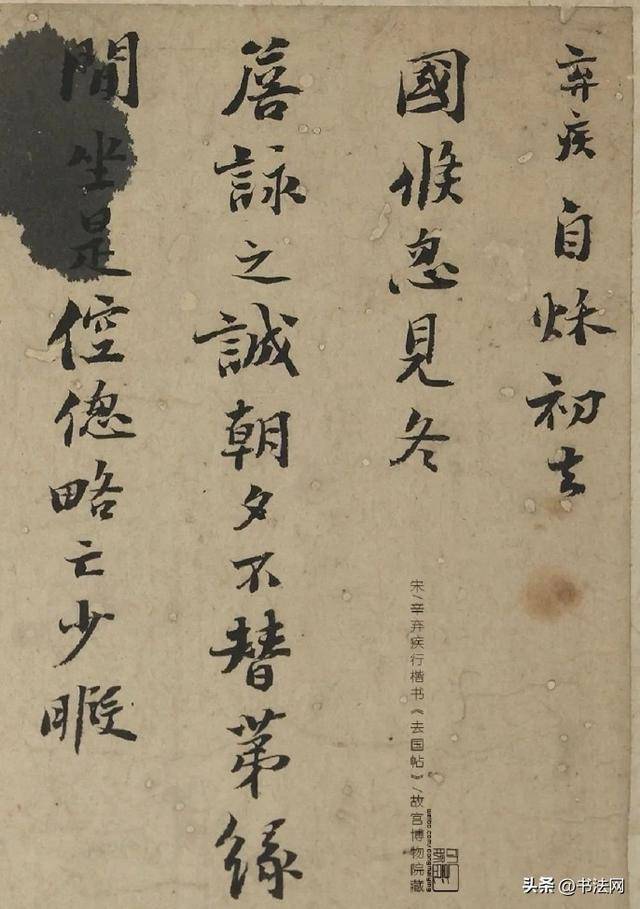 弃疾自秋初去
國倏忽見冬
詹詠之誠朝夕不替苐緣
間坐是倥偬略亡少暇
宋/辛弃疾行楷书《去国帖》/故宫博物院藏
头条 @书法网